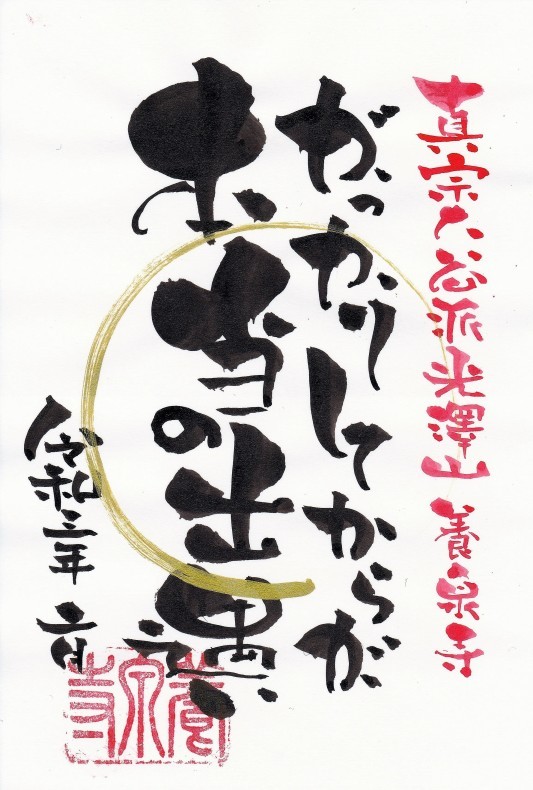 真宗大谷派光澤山 養泉寺
がっかりしてからが
本当の出遇い
令和三年 六月
養泉寺